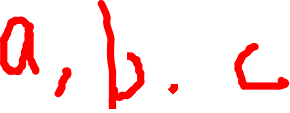 a, b. c